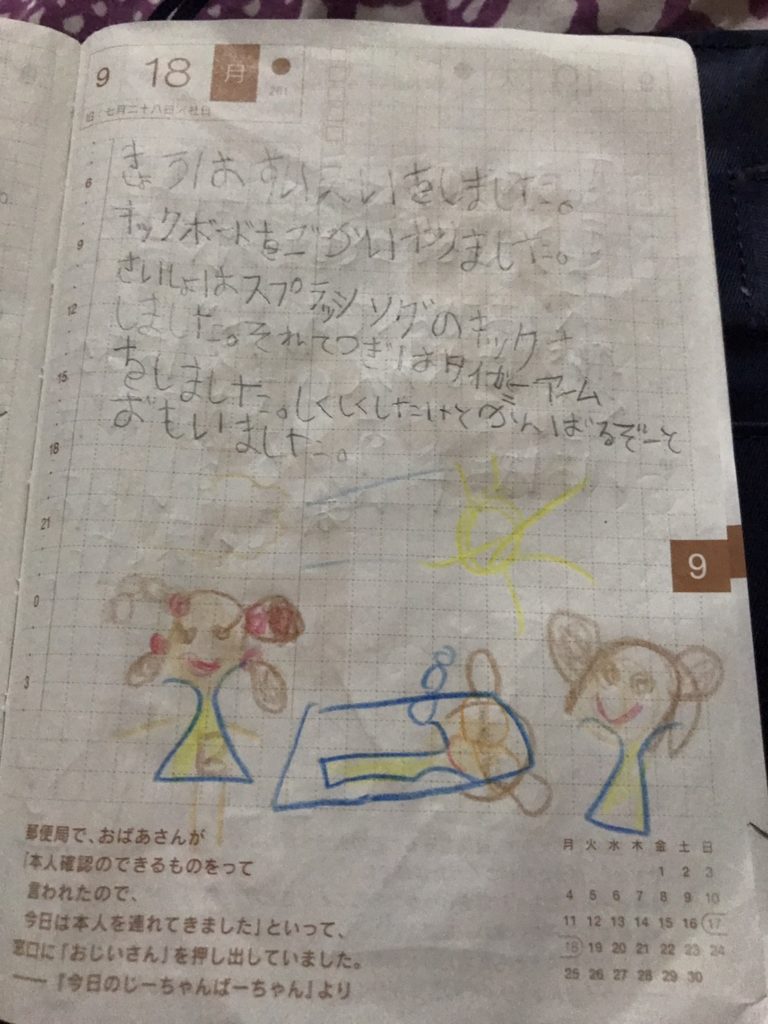 9 18 月
261
旧：七月二十八日／社日
きょうはすいえいをしました。
キックボードをごかいやりました。
さいしょはスプラッシソグのキック
しました。それてつぎはタイガーアーム
をしました。しくしくしたけどがんばるぞーと
おもいました。
6
9
12
15
18
21
0
3
9
郵便局で、おばあさんが
「本人確認のできるものをって
言われたので、
今日は本人を連れてきました」といって、
窓口に「おじいさん」を押し出していました。
──『今日のじーちゃんばーちゃん』より
月 火 水 木 金 土 日
1 2 3
4 5 6 7 8 9 10
11 12 13 14 15 16 17
18 19 20 21 22 23 24
25 26 27 28 29 30